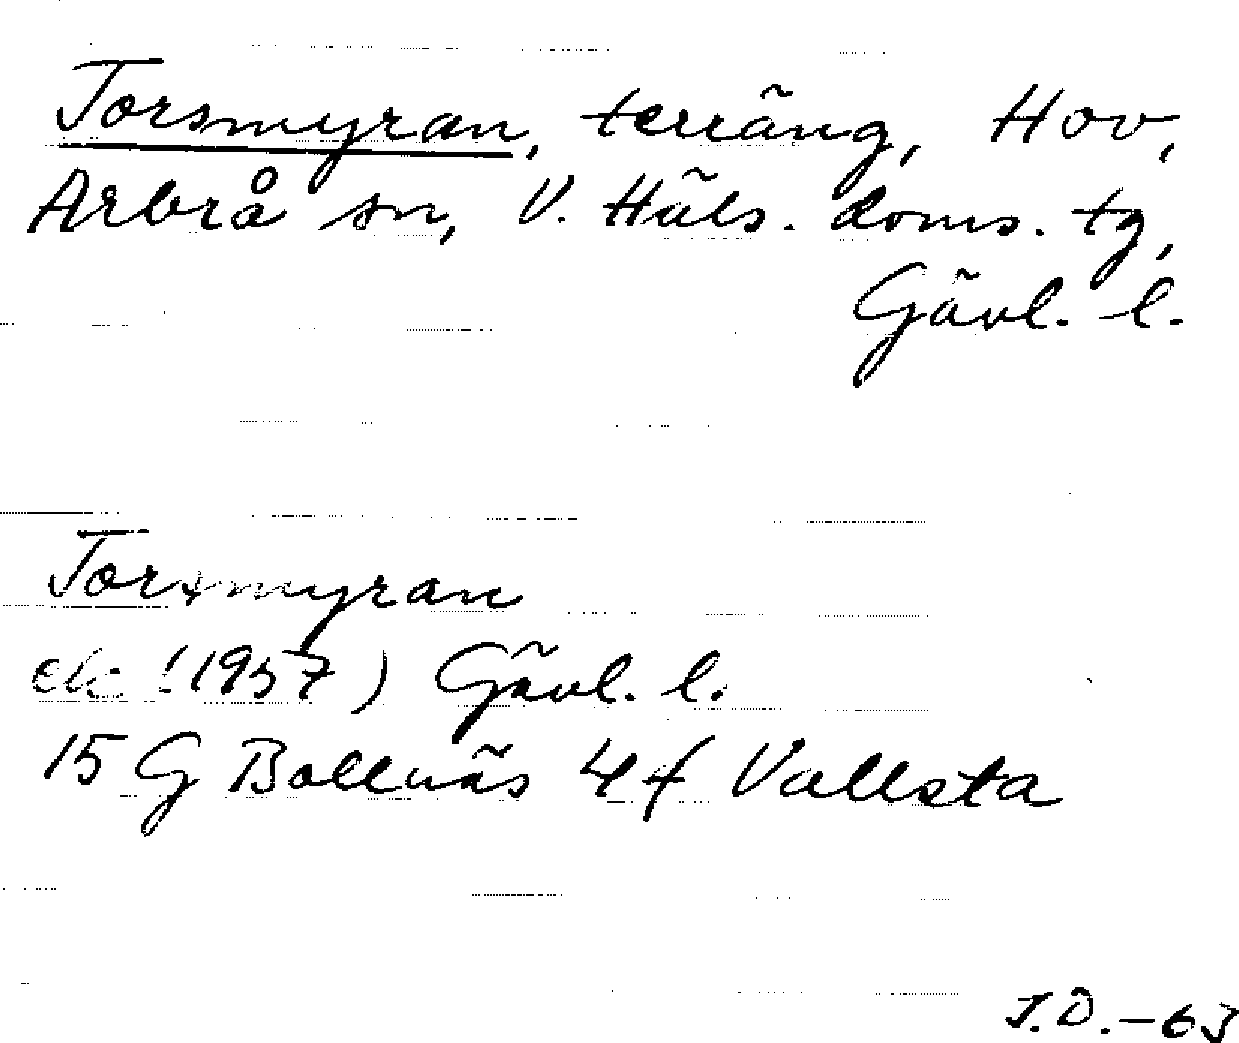 Torsmyran, terräng, Hov,
Arbrå sn, V. Häls. doms. tg,
Gävl. l.
Torsmyran
ek (1957) Gävl. l.
15 G Bollnäs 4f Vallsta
J.Ö.-63